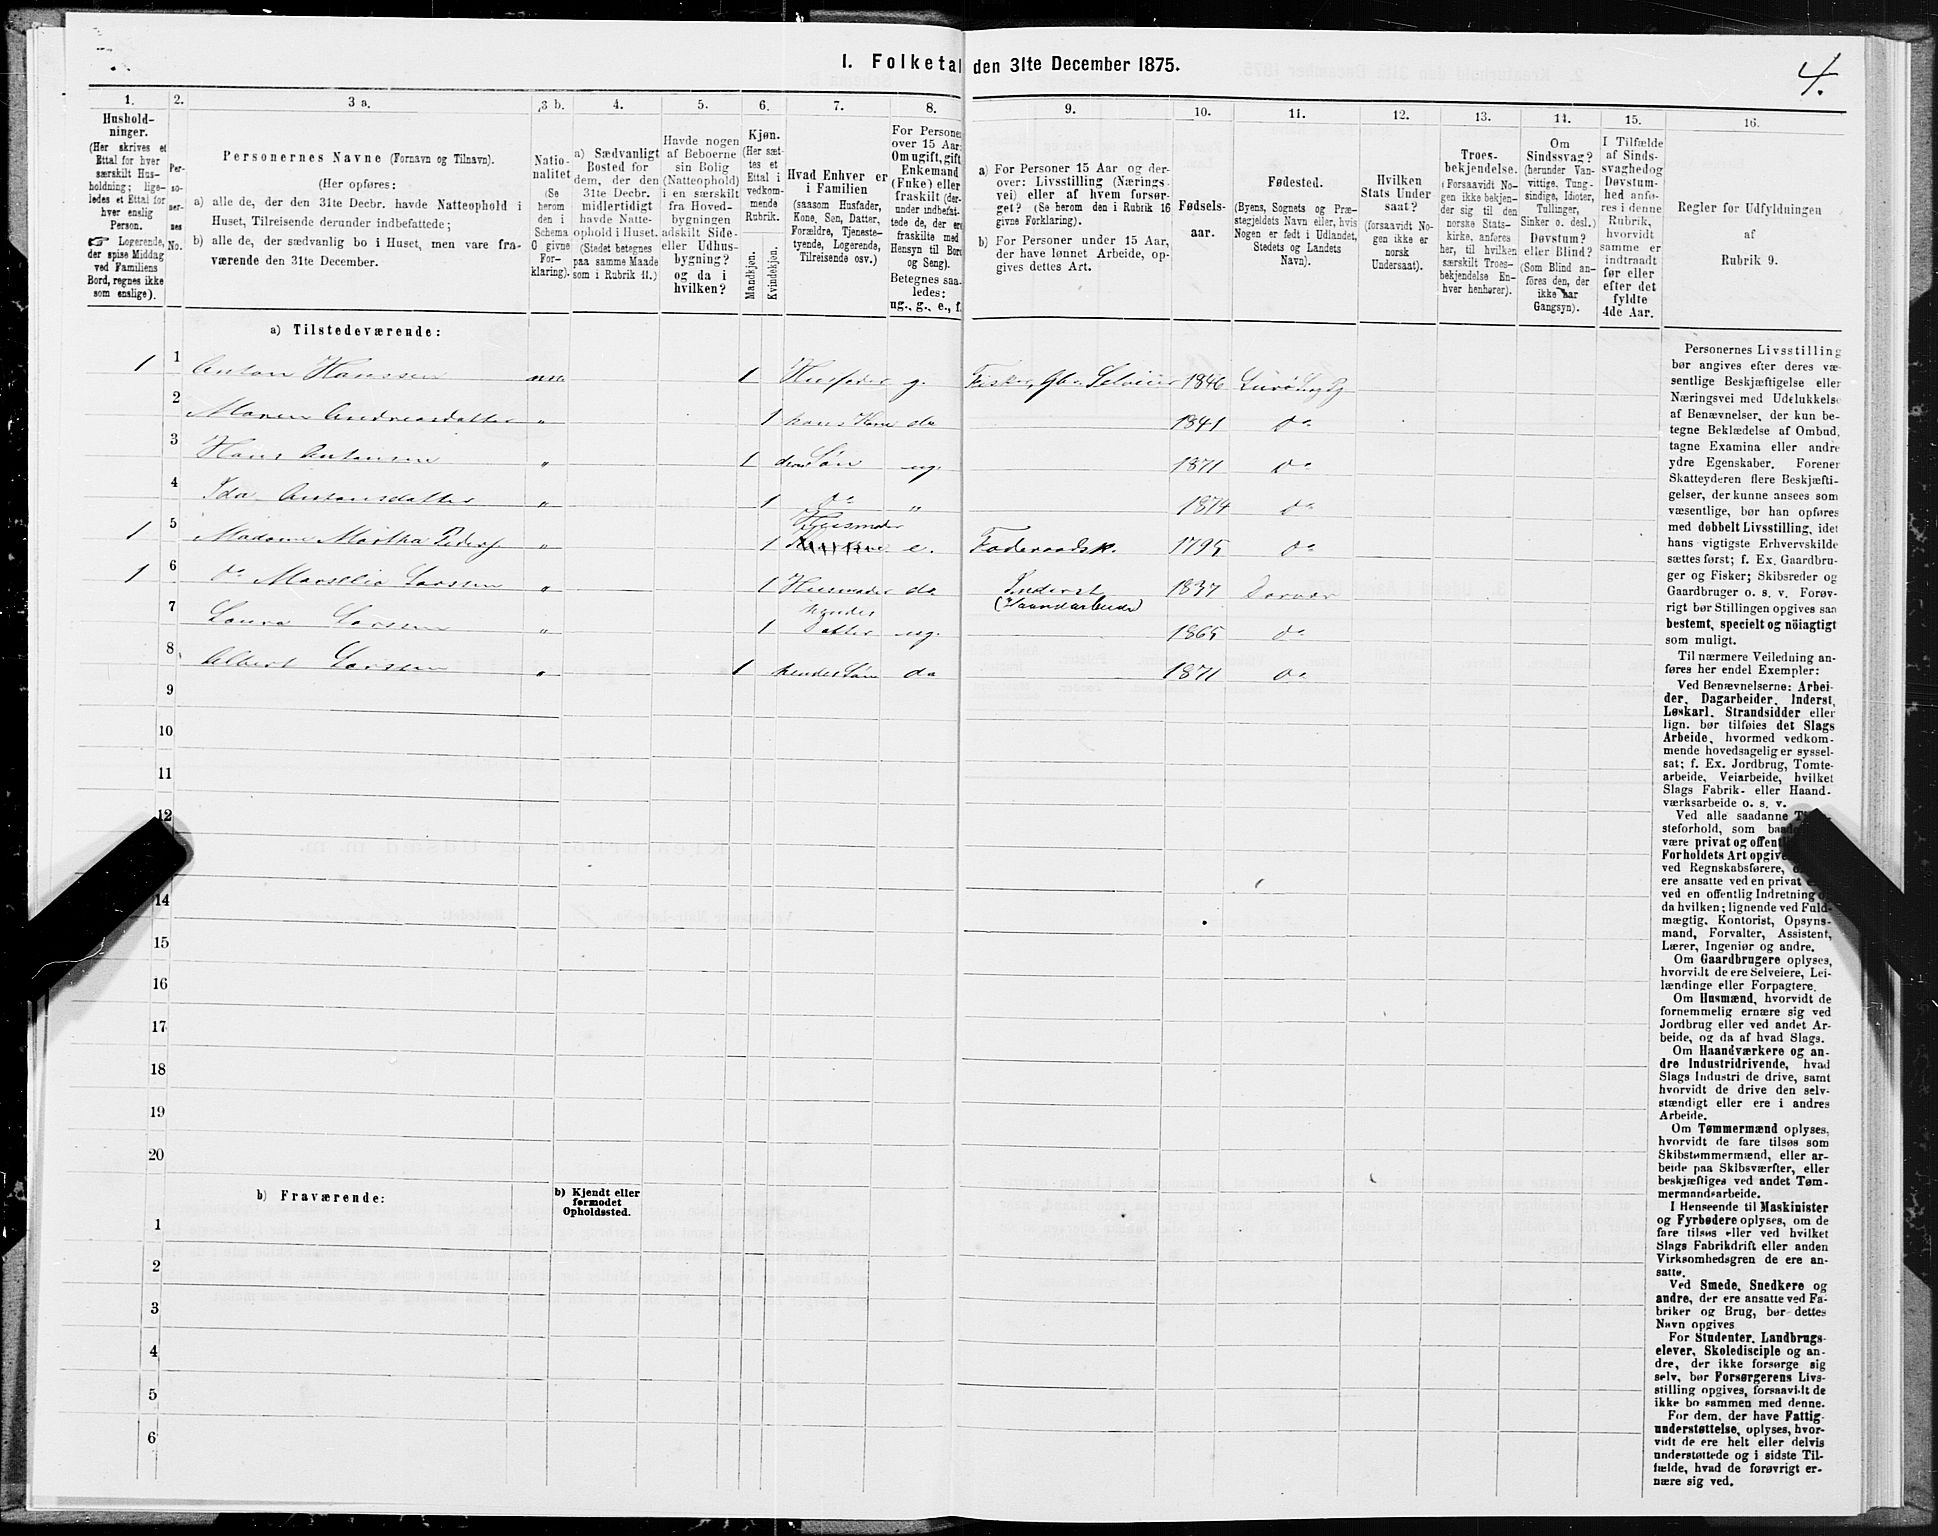 4.
1. Folketal den 31te December 1875.
1. 2. 3 a. 3 b. 4. 5. 6. 7. 8. 9. 10. 11. 12. 13. 14. 15. 16.
Hushold-
ninger.
(Her skrives et
Ettal for hver
særskilt Hus-
holdning; lige-
ledes et Ettal for
hver enslig
Person.
☞ Logerende,
der spise Middag
ved Familiens
Bord, regnes ikke
som enslige).
Per-
so-
ner-
nes
No.
Personernes Navne (Fornavn og Tilnavn).
(Her opføres:
a) alle de, der den 31te Decbr. havde Natteophold i
Huset, Tilreisende derunder indbefattede;
b) alle de, der sædvanlig bo i Huset, men vare fra-
værende den 31te December.
Natio-
nalitet
(Se
herom
den i
Schema
O givne
For-
klaring).
a) Sædvanligt
Bosted for
dem, der den
31te Decbr.
midlertidigt
havde Natte-
ophold i Huset.
(Stedet betegnes
paa samme Maade
som i Rubrik 11.)
Havde nogen
af Beboerne
sin Bolig
(Natteophold)
i en særskilt
fra Hoved-
bygningen
adskilt Side-
eller Udhus-
bygning?
og da i
hvilken?
Kjøn.
(Her sæt-
tes et
Ettal i
vedkom-
mende
Rubrik.
Mandkjøn.
Kvindekjøn.
Hvad Enhver er
i Familien
(saasom Husfader,
Kone, Søn, Datter,
Forældre, Tjeneste-
tyende, Logerende,
Tilreisende osv.)
For Personer
over 15 Aar:
Om ugift, gift,
Enkemand
(Enke) eller
fraskilt (der-
under indbefat-
tede de, der ere
fraskilte med
Hensyn til Bord
og Seng).
Betegnes saa-
ledes:
ug., g., e., f.
a) For Personer 15 Aar og der-
over: Livsstilling (Nærings-
vei) eller af hvem forsør-
get? (Se herom den i Rubrik 16
givne Forklaring).
b) For Personer under 15 Aar,
der have lønnet Arbeide, op-
gives dettes Art.
Fødsels-
aar.
Fødested.
(Byens, Sognets og Præ-
stegjeldets Navn eller, hvis
Nogen er født i Udlandet,
Stedets og Landets
Navn).
Hvilken
Stats Under
saat?
(forsaavidt No-
gen ikke er
norsk
Undersaat).
Troes-
bekjendelse.
(Forsaavidt No-
gen ikke bekjen-
der sig til den
norske Stats-
kirke, anføres
her, til hvilken
særskilt Troes-
bekjendelse En-
hver henhører).
Om
Sindssvag?
(herunder Van-
vittige, Tung-
sindige, Idioter,
Tullinger,
Sinker o. desl.)
Døvstum?
eller Blind?
(Som Blind an-
føres den, der
ikke har
Gangsyn).
I Tilfælde
af Sinds-
svaghed og
Døvstum-
hed anfø-
res i denne
Rubrik,
hvorvidt
samme er
indtraadt
før eller
efter det
fyldte
4de Aar.
Regler for Udfyldningen
af
Rubrik 9.
a) Tilstedeværende:
1 1 Anton Hanssen nn. 1 Husfader g. Fisker, Gbr. Selveier 1846 Lurö
2 Maren Andreasdatter " 1 hans Kone do 1841 do
3 Hans Antonsen " 1 deres Søn ug. 1871 do
4 Ida Antonsdatter " 1 do " 1874 do
1 5 Madame Martha Peders " 1 Husmoder e. Foderaadsk. 1795 do
1 6 do Marselia Larssen " 1 Husmoder do Inderst 1837
(Haandarbeide)
7 Laura Larssen " 1 hendes Datter ug. 1865 do
8 Albert Larssen " 1 hendes Søn do 1871 do
9
10
11
12
14
15
16
17
18
19
20
b) Fraværende:
b) Kjendt eller
formodet
Opholdssted.
1
2
3
4
5
6
Personernes Livsstilling
bør angives efter deres væ-
sentlige Beskjæftigelse eller
Næringsvei med Udelukkelse
af Benævnelser, der kun be-
tegne Beklædelse af Ombud,
tagne Examina eller andre
ydre Egenskaber. Forener
Skatteyderen flere Beskjæfti-
gelser, der kunne ansees som
væsentlige, bør han opføres
med dobbelt Livsstilling, idet
hans vigtigste Erhvervskilde
sættes først; f. Ex. Gaardbru-
ger og Fisker; Skibsreder og
Gaardbruger o. s. v. Forøv-
rigt bør Stillingen opgives saa
bestemt, specielt og nöiagtigt
som muligt.
Til nærmere Veiledning an-
føres her endel Exempler:
Ved Benævnelserne: Arbei-
der, Dagarbeider, Inderst,
Løskarl, Strandsidder eller
lign. bør tilføies det Slags
Arbeide, hvormed vedkom-
mende hovedsagelig er syssel-
sat; f. Ex. Jordbrug, Tomte-
arbeide, Veiarbeide, hvilket
Slags Fabrik- eller Haand-
værksarbeide o. s. v.
Ved alle saadanne
steforhold, som
være privat og
Forholdets Art
ved Regnskabsførere,
ere ansatte ved en privat
ved en offentlig Indretning
da hvilken; lignende ved Fuld-
mægtig, Kontorist, Opsyns-
mand, Forvalter, Assistent,
Lærer, Ingeniør og andre.
Om Gaardbrugere oplyses,
hvorvidt de ere Selveiere, Lei-
lændinge eller Forpagtere.
Om Husmænd, hvorvidt de
fornemmelig ernære sig ved
Jordbrug eller ved andet Ar-
beide, og da af hvad Slags.
Om Haandværkere og an-
dre Industridrivende, hvad
Slags Industri de drive, samt
hvorvidt de drive den selv-
stændigt eller ere i andres
Arbeide.
Om Tømmermænd oplyses,
hvorvidt de fare tilsøs som
Skibstømmermænd, eller ar-
beide paa Skibsværfter, eller
beskjæftiges ved andet Tøm-
mermandsarbeide.
I Henseende til Maskinister
og Fyrbødere oplyses, om de
fare tilsøs eller ved hvilket
Slags Fabrikdrift eller anden
Virksomhedsgren de ere an-
satte.
Ved Smede, Snedkere og
andre, der ere ansatte ved Fa-
briker og Brug, bør dettes
Navn opgives
For Studenter, Landbrugs-
elever, Skoledisciple og an-
dre, der ikke forsørge sig
selv, bør Forsørgerens Livs-
stilling opgives, forsaavidt de
ikke bo sammen med denne.
For dem, der have Fattig-
understøttelse, oplyses, hvor-
vidt de ere helt eller delvis
understøttede og i sidste Til-
fælde, hvad de forøvrigt er-
nære sig ved.